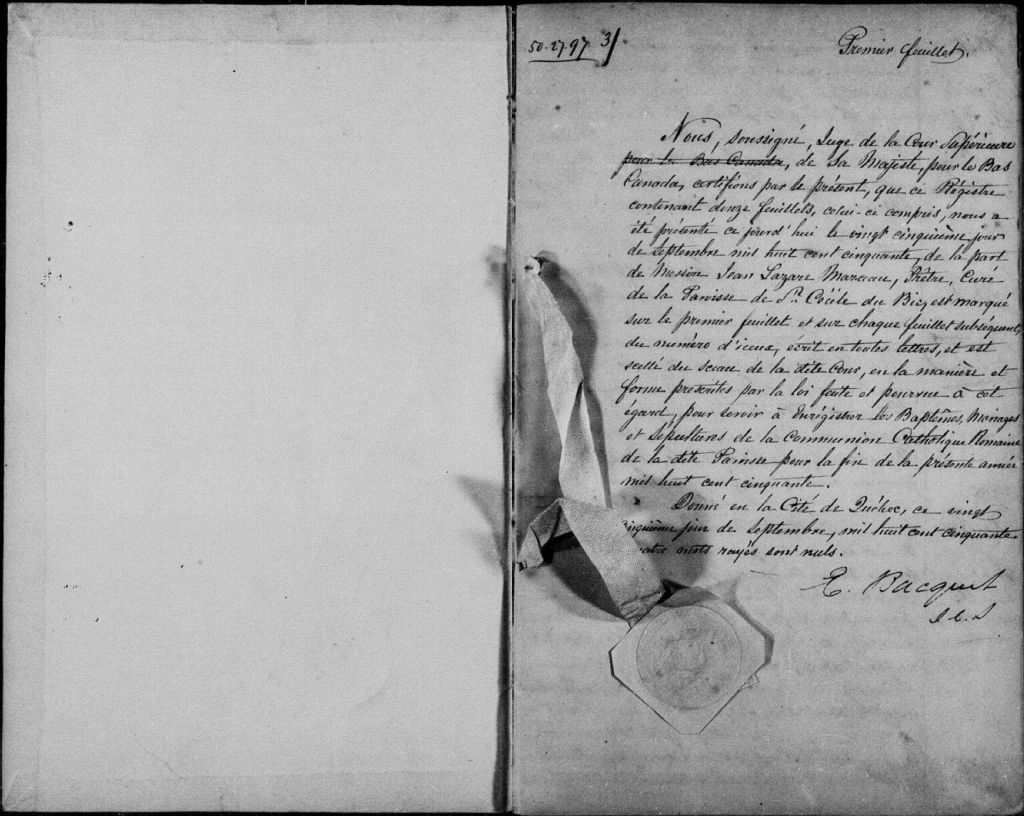 50-27-97 3/
Premier feuillet.
Nous, soussigné, Juge de la Cour Supérieure
pour le Bas Canada, de Sa Majesté, pour le Bas
Canada, certifions par le présent, que ce Régistre
contenant douze feuillets, celui-ci compris, nous a
été présenté ce jourd'hui le vingt cinquième jour
de Septembre mil huit cent cinquante, de la part
de Messire Jean Lazare Marceau, Prêtre, Curé
de la Paroisse de Ste Cécile du Bic, est marqué
sur le premier feuillet et sur chaque feuillet subséquent,
du numéro d'iceux, écrit en toutes lettres, et est
scellé du sceau de la dite Cour, en la manière et
forme prescrites par la loi faite et pourvue à cet
égard, pour servir à Enrégistrer les Baptêmes, Mariages
et Sépultures de la Communion Catholique Romaine
de la dite Paroisse pour la fin de la présente année
mil huit cent cinquante.
Donné en la Cité de Québec, ce vingt
cinquième jour de Septembre, mil huit cent cinquante.
quatre mots rayés sont nuls.
E. Bacquet
J. C. S